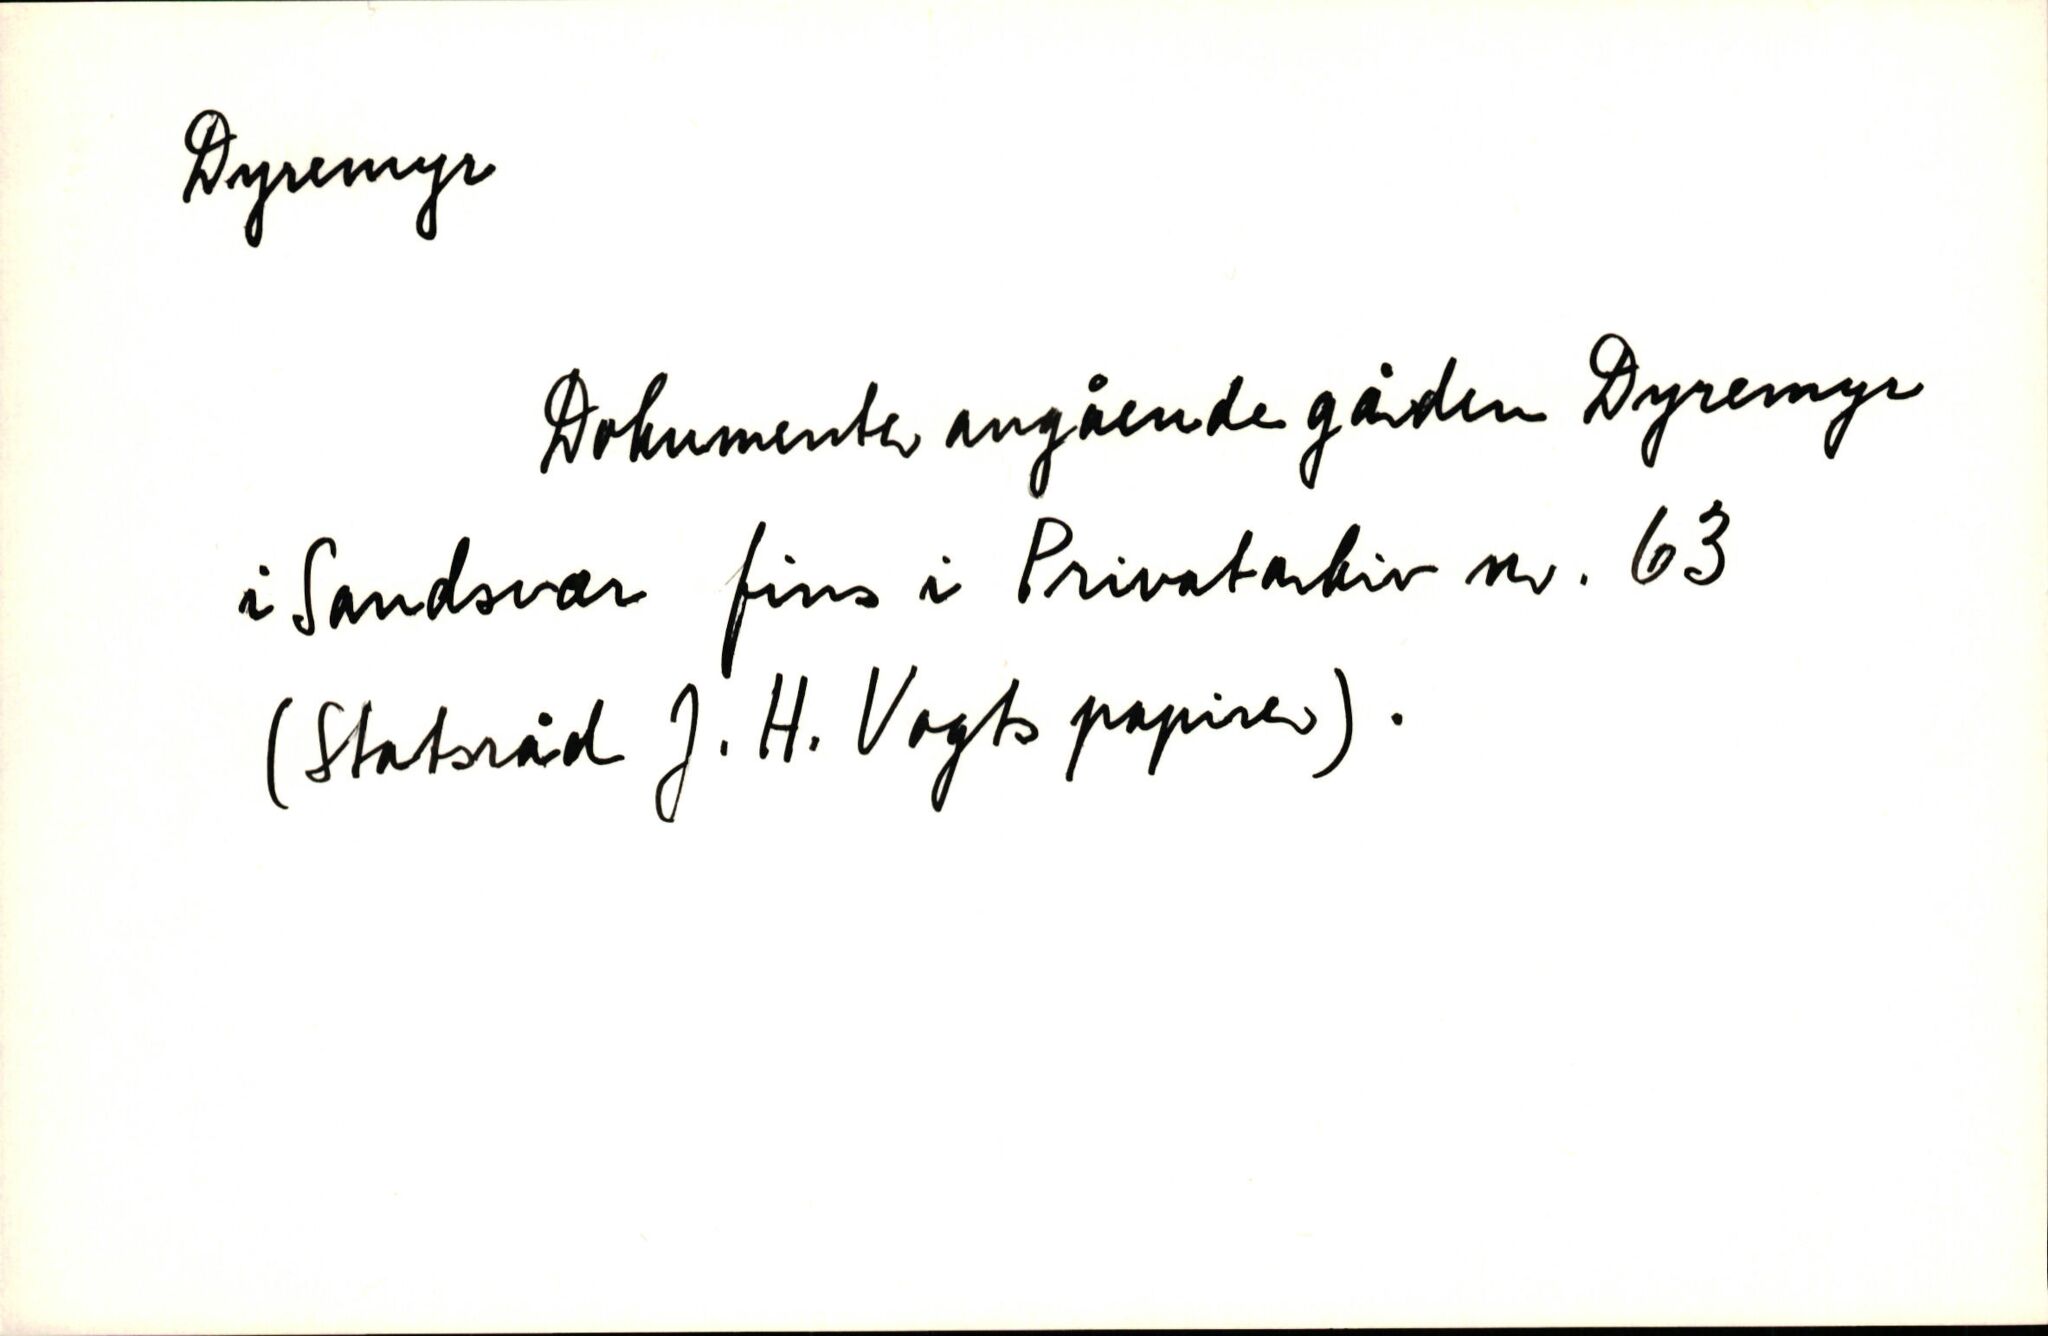 Dyremyr
Dokumenter angående gården Dyremyr
i Sandsvær fins i Privatarkiv nr. 63
(Statsråd J. H. Vogts papirer).